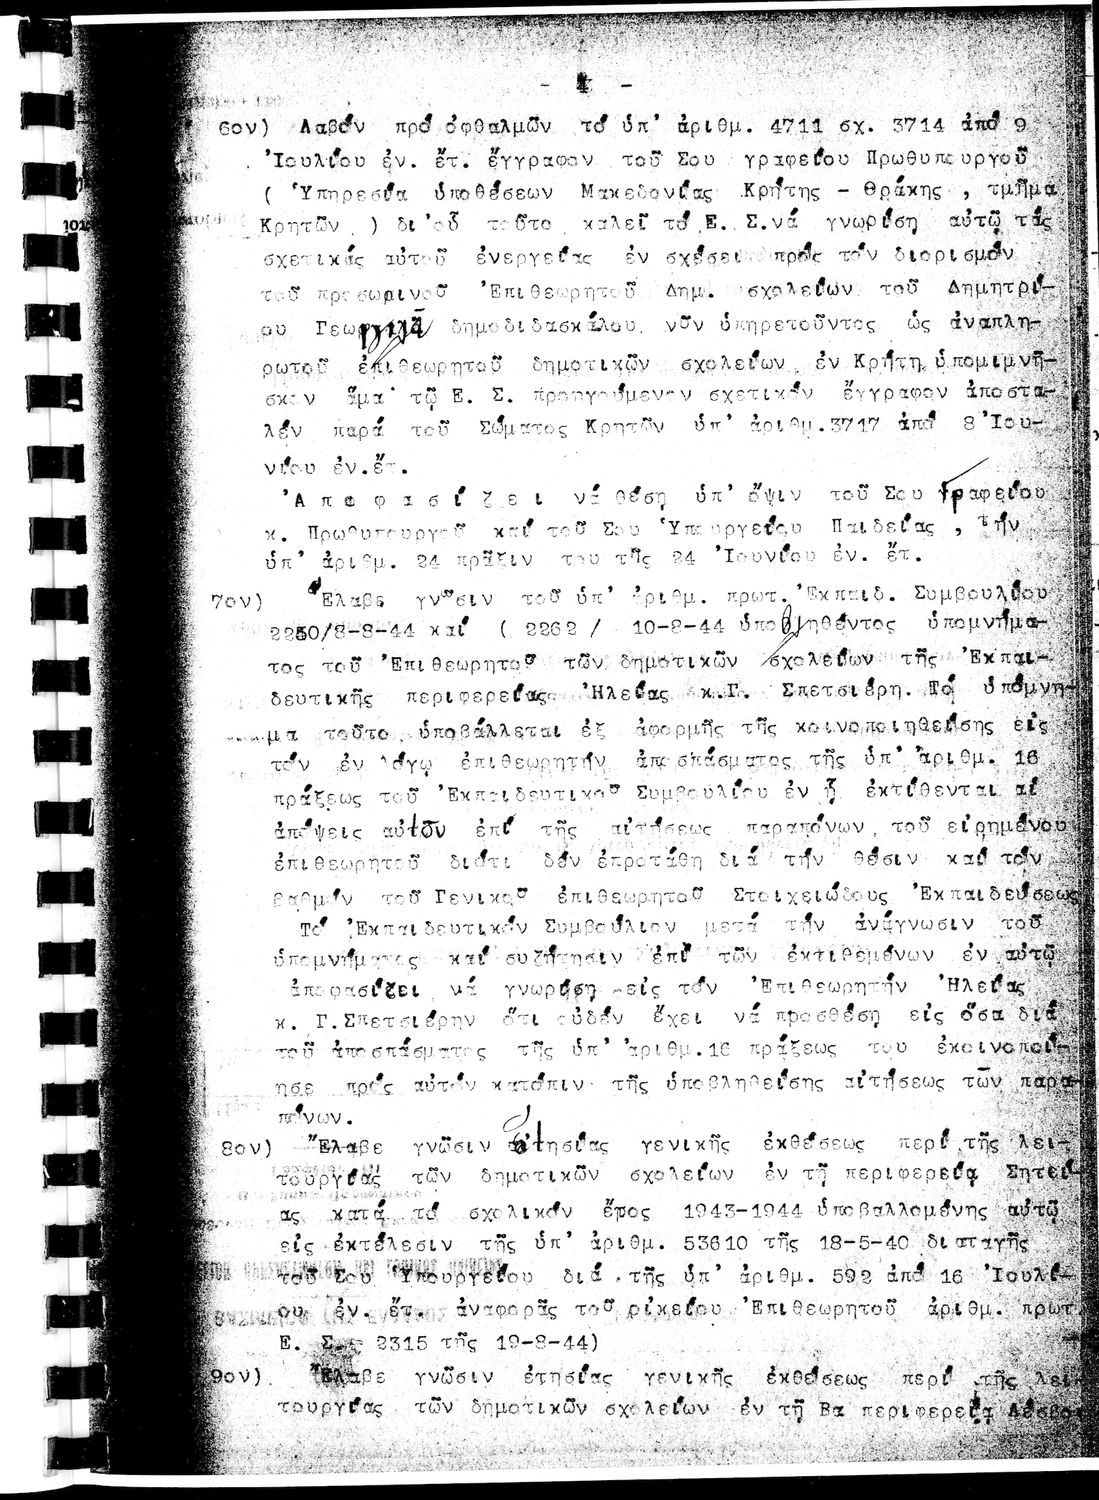 - 4 -
6ον) Λαβόν πρό ὀφθαλμῶν τό ὑπ' ἀριθμ. 4711 σχ. 3714 ἀπό 9
'Ιουλίου ἐν. ἔτ. ἔγγραφον τοῦ Σου γραφείου Πρωθυπουργοῦ
( Ὑπηρεσία ὑποθέσεων Μακεδονίας Κρήτης - Θράκης , τμῆμα
Κρητῶν ) δι'οὗ τοῦτο καλεῖ τό Ε. Σ.νά γνωρίση αὐτῷ τάς
σχετικάς αὐτοῦ ἐνεργείας ἐν σχέσει πρός τόν διορισμόν
τοῦ προσωρινοῦ 'Επιθεωρητοῦ Δημ. σχολείων τοῦ Δημητρί-
ου δημοδιδασκάλου νῦν ὑπηρετοῦντος ὡς ἀναπλη-
ρωτοῦ ἐπιθεωρητοῦ δημοτικῶν σχολείων ἐν Κρήτη, ὑπομιμνῆ-
σκον ἅμα τῷ Ε. Σ. προηγούμενον σχετικόν ἔγγραφον ἀποστα-
λέν παρά τοῦ Σώματος Κρητῶν ὑπ' ἀριθμ.3717 ἀπό 8 'Ιου-
νίου ἐν.ἔτ.
'Α π ο φ α σ ί ζ ε ι νά θέση ὑπ' ὄψιν τοῦ Σου γραφείου
κ. Πρωθυπουργοῦ καί τοῦ Σου Ὑπουργείου Παιδείας , τήν
ὑπ' ἀριθμ. 24 πρᾶξιν του τῆς 24 'Ιουνίου ἐν. ἔτ.
7ον) Ἔλαβε γνῶσιν τοῦ ὑπ' ἀριθμ. πρωτ. Ἐκπαιδ. Συμβουλίου
2250/8-8-44 καί ( 2262 / 10-8-44 ὑποβληθέντος ὑπομνήμα-
τος τοῦ 'Επιθεωρητοῦ τῶν δημοτικῶν σχολείων τῆς 'Εκπαι-
δευτικῆς περιφερείας 'Ηλείας κ.Γ. Σπετσιέρη. Τό ὑπόμνη-
μα τοῦτο ὑποβάλλεται ἐξ ἀφορμῆς τῆς κοινοποιηθείσης εἰς
τόν ἐν λόγῳ ἐπιθεωρητήν ἀποσπάσματος τῆς ὑπ' ἀριθμ. 16
πράξεως τοῦ 'Εκπαιδευτικοῦ Συμβουλίου ἐν ᾗ ἐκτίθενται αἱ
ἀπόψεις αὐτοῦ ἐπί τῆς αἰτήσεως παραπόνων τοῦ εἰρημένου
ἐπιθεωρητοῦ διότι δέν ἐπροτάθη διά τήν θέσιν καί τόν
βαθμόν τοῦ Γενικοῦ ἐπιθεωρητοῦ Στοιχειώδους 'Εκπαιδεύσεως
Τό 'Εκπαιδευτικόν Συμβούλιον μετά τήν ἀνάγνωσιν τοῦ
ὑπομνήματος καί συζήτησιν ἐπί τῶν ἐκτιθεμένων ἐν αὐτῷ
ἀποφασίζει νά γνωρίση εἰς τόν 'Επιθεωρητήν 'Ηλείας
κ. Γ.Σπετσιέρην ὅτι οὐδέν ἔχει νά προσθέση εἰς ὅσα διά
τοῦ ἀποσπάσματος τῆς ὑπ' ἀριθμ.16 πράξεως του ἐκοινοποί-
ησε πρός αὐτόν κατόπιν τῆς ὑποβληθείσης αἰτήσεως τῶν παρα-
πόνων.
8ον) Ἔλαβε γνῶσιν ἐτησίας γενικῆς ἐκθέσεως περί τῆς λει-
τουργίας τῶν δημοτικῶν σχολείων ἐν τῇ περιφερείᾳ Σητεί-
ας κατά τό σχολικόν ἔτος 1943-1944 ὑποβαλλομένης αὐτῷ
εἰς ἐκτέλεσιν τῆς ὑπ' ἀριθμ. 53610 τῆς 18-5-40 διαταγῆς
τοῦ Σου Ὑπουργείου διά τῆς ὑπ' ἀριθμ. 592 ἀπό 16 'Ιουλί-
ου ἐν. ἔτ. ἀναφορᾶς τοῦ οἰκείου 'Επιθεωρητοῦ ἀριθμ. πρωτ
Ε. Σ. 2315 τῆς 19-8-44)
9ον) Ἔλαβε γνῶσιν ἐτησίας γενικῆς ἐκθέσεως περί τῆς λει
τουργίας τῶν δημοτικῶν σχολείων ἐν τῇ Βα περιφερείᾳ Λέσβου